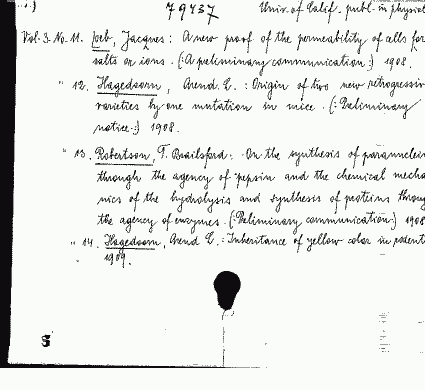 79437 Univ. of Calif. publ. in physiol
Vol. 3. No. 11. Loeb, Jacques: A new proof of the permeability of cells for
salts or ions. (: A preliminary communication :) 1908.
" 12. Hagedoorn, Arend L.: Origin of two new retrogressiv
varieties by one mutation in mice. (: Preliminary
notice :) 1908.
" 13. Robertson, T. Brailsford: On the synthesis of paranuclein
through the agency of pepsin and the chemical mecha
nics of the hydrolysis and synthesis of proteins throug
the agency of enzymes. (: Preliminary communication :) 1908
" 14. Hagedoorn, Arend L.: Inheritance of yellow color in rodent
1909.